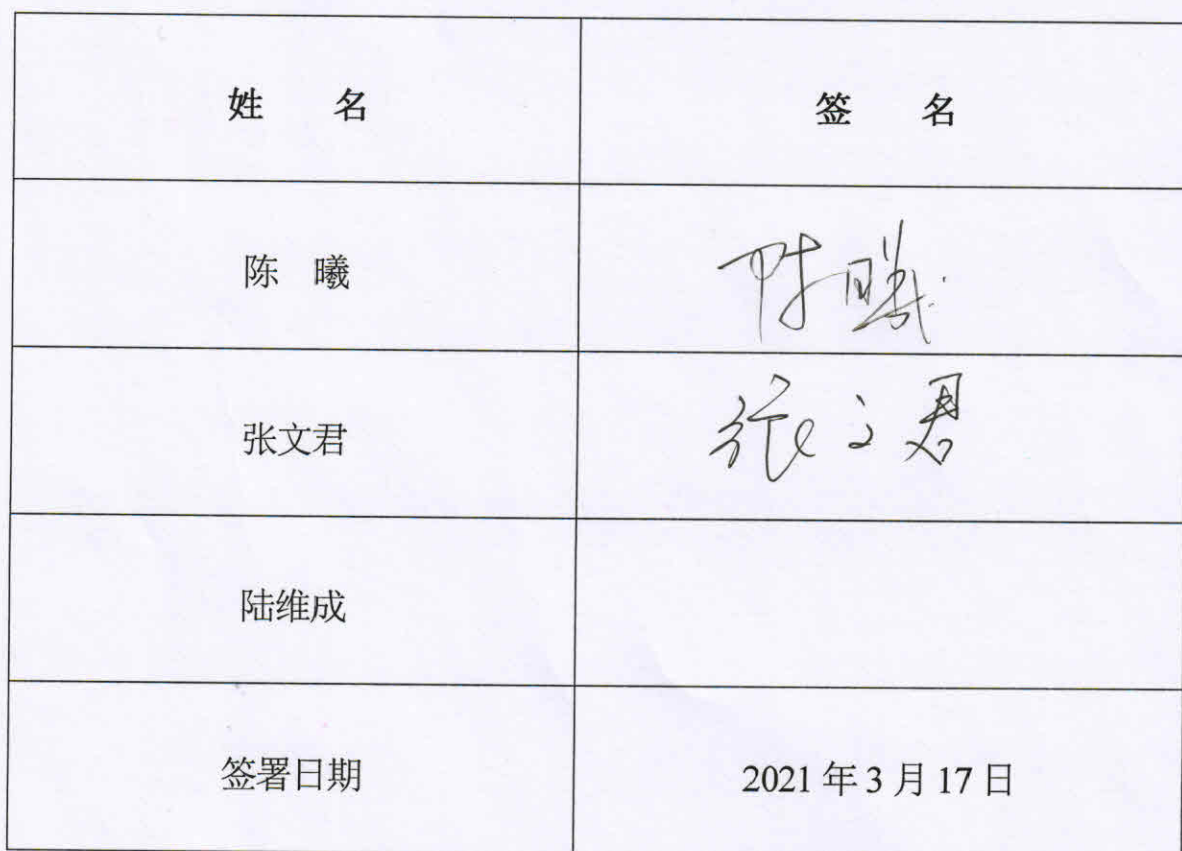 姓 名 签 名
陈 曦 陈曦
张文君 张文君
陆维成
签署日期 2021年3月17日